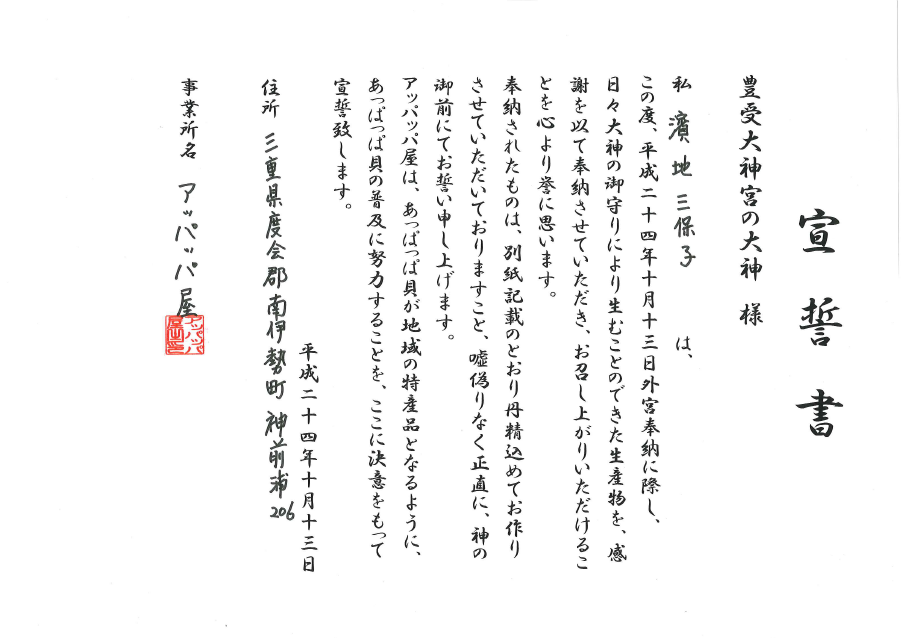 宣誓書
豊受大神宮の大神 様
私 濱地三保子 は、
この度、平成二十四年十月十三日外宮奉納に際し、
日々大神の御守りにより生むことのできた生産物を、感
謝を以て奉納させていただき、お召し上がりいただけるこ
とを心より誉に思います。
奉納されたものは、別紙記載のとおり丹精込めてお作り
させていただいておりますこと、嘘偽りなく正直に、神の
御前にてお誓い申し上げます。
アッパッパ屋は、あっぱっぱ貝が地域の特産品となるように、
あっぱっぱ貝の普及に努力することを、ここに決意をもって
宣誓致します。
平成二十四年十月十三日
住所 三重県度会郡南伊勢町神前浦206
事業所名 アッパッパ屋
アッパッパ
屋之印